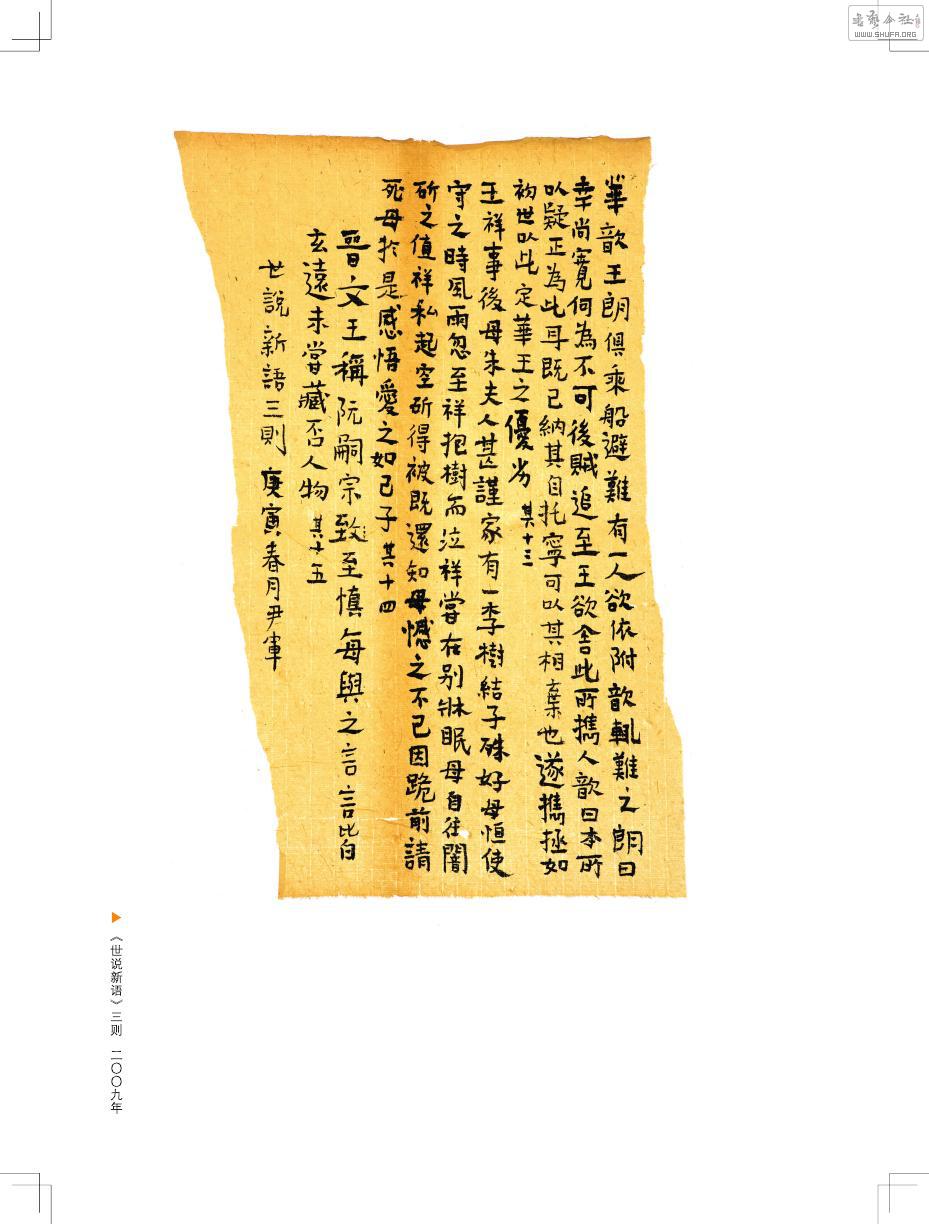 華歆王朗俱乘船避難有一人欲依附歆輒難之朗曰
幸尚寬何為不可後賊追至王欲舍此所攜人歆曰本所
以疑正為此耳既已納其自托寧可以其相棄也遂攜拯如
初世以此定華王之優劣 其十三
王祥事後母朱夫人甚謹家有一李樹結子殊好母恒使
守之時風雨忽至祥抱樹而泣祥嘗在别牀眠母自往闇
斫之值祥私起空斫得被既還知母憾之不已因跪前請
死母於是感悟愛之如己子 其十四
晉文王稱阮嗣宗致至慎每與之言言皆
玄遠未嘗藏否人物 其十五
世說新語三則 庚寅春月尹軍
《世说新语》三则 二〇〇九年
WWW.SHUFA.ORG